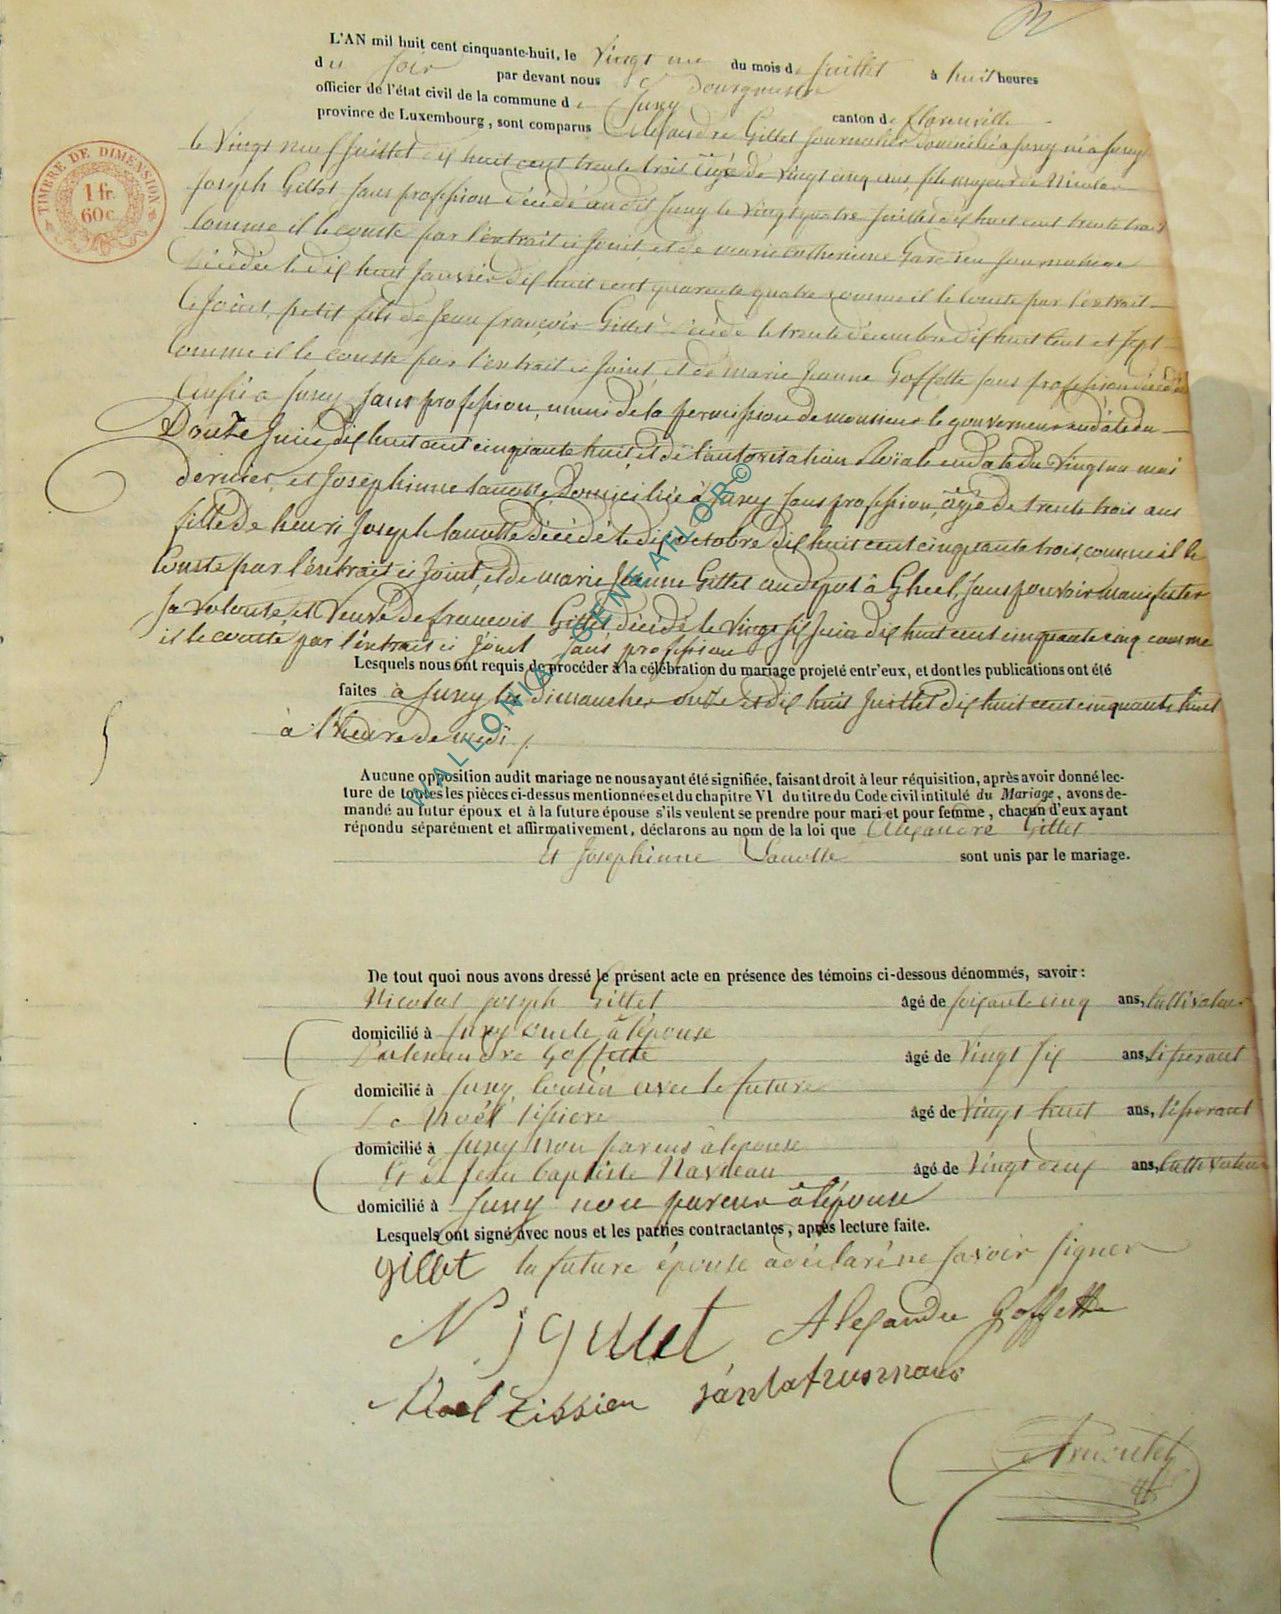 L'AN mil huit cent cinquante-huit, le vingt un du mois de Juillet à huit heures
du soir par devant nous Bourgmestre
officier de l'état civil de la commune de Jusey canton de florenville
province de Luxembourg, sont comparus Alexandre Gillet Journalier domicilié à Jusey né à Jusey
TIMBRE DE DIMENSION
1 fr.
60 c.
le Vingt neuf Juillet dix huit cent trente trois âgé de vingt cinq ans, fils majeur de Nicolas
Joseph Gillet sans profession décédé audit Jusey le vingt quatre Juillet dix huit cent trente trois
comme il le conste par l'extrait ci joint, et de marie catherinne Journalière
décédée le dix huit Janvier dix huit cent quarante quatre comme il le conste par l'extrait
ci Joint, petit fils de Jean françois Gillet décédé le trente décembre dix huit cent et sept
comme il le conste par l'extrait ci joint, et de marie Jeanne Goffette sans profession décédée
aussi à Jusey sans profession, muni de la permission de monsieur le gouverneur en date du
Douze Juin dix huit cent cinquante huit, et de l'autorisation Roiale en date du vingt un mai
dernier, et Josephinne Lanotte Domiciliée à Jusey sans profession, âgée de trente trois ans
fille de henri Joseph lanotte décédé le dix octobre dix huit cent cinquante trois, comme il le
Conste par l'extrait ci Joint, et de marie Jeanne Gillet au depot à Gheel, sans pouvoir manifester
sa volonté, et Veuve de francois Gillet décédé le Vingt six Juin dix huit cent cinquante cinq comme
il le conste par l'extrait ci Joint sans profession
Lesquels nous ont requis de procéder à la célébration du mariage projeté entr'eux, et dont les publications ont été
faites à Jusey les dimanches onze et dix huit Juillet dix huit cent cinquante huit
à l'heure de midi
Aucune opposition audit mariage ne nous ayant été signifiée, faisant droit à leur réquisition, après avoir donné lec-
ture de toutes les pièces ci-dessus mentionnées et du chapitre VI du titre du Code civil intitulé du Mariage, avons de-
mandé au futur époux et à la future épouse s'ils veulent se prendre pour mari et pour femme, chacun d'eux ayant
répondu séparément et affirmativement, déclarons au nom de la loi que Alexandre Gillet
et Josephinne Lanotte sont unis par le mariage.
De tout quoi nous avons dressé le présent acte en présence des témoins ci-dessous dénommés, savoir:
Nicolas joseph Gillet âgé de soixante cinq ans, cultivateur
domicilié à Jusey oncle à l'épouse
Alexandre Goffette âgé de Vingt six ans, tisserant
domicilié à Jusey Cousin avec le future
Noël tissiere âgé de Vingt huit ans, tisserant
domicilié à Jusey non parens à lépouse
Et Jean baptiste Navreau âgé de Vingt deux ans, Cultivateur
domicilié à Jusey non parens à lépouse
Lesquels ont signé avec nous et les parties contractantes, après lecture faite.
gillet la future épouse a déclaré ne savoir signer
Alexandre Goffette
Noel tissien
WALLONIA GENEARLOR©